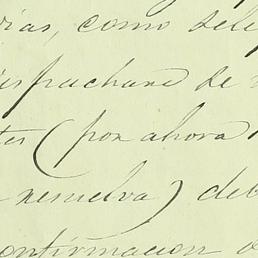 rias, como sele
ispachane de
tes (por ahora
resuelva) deb
onfirmacion o